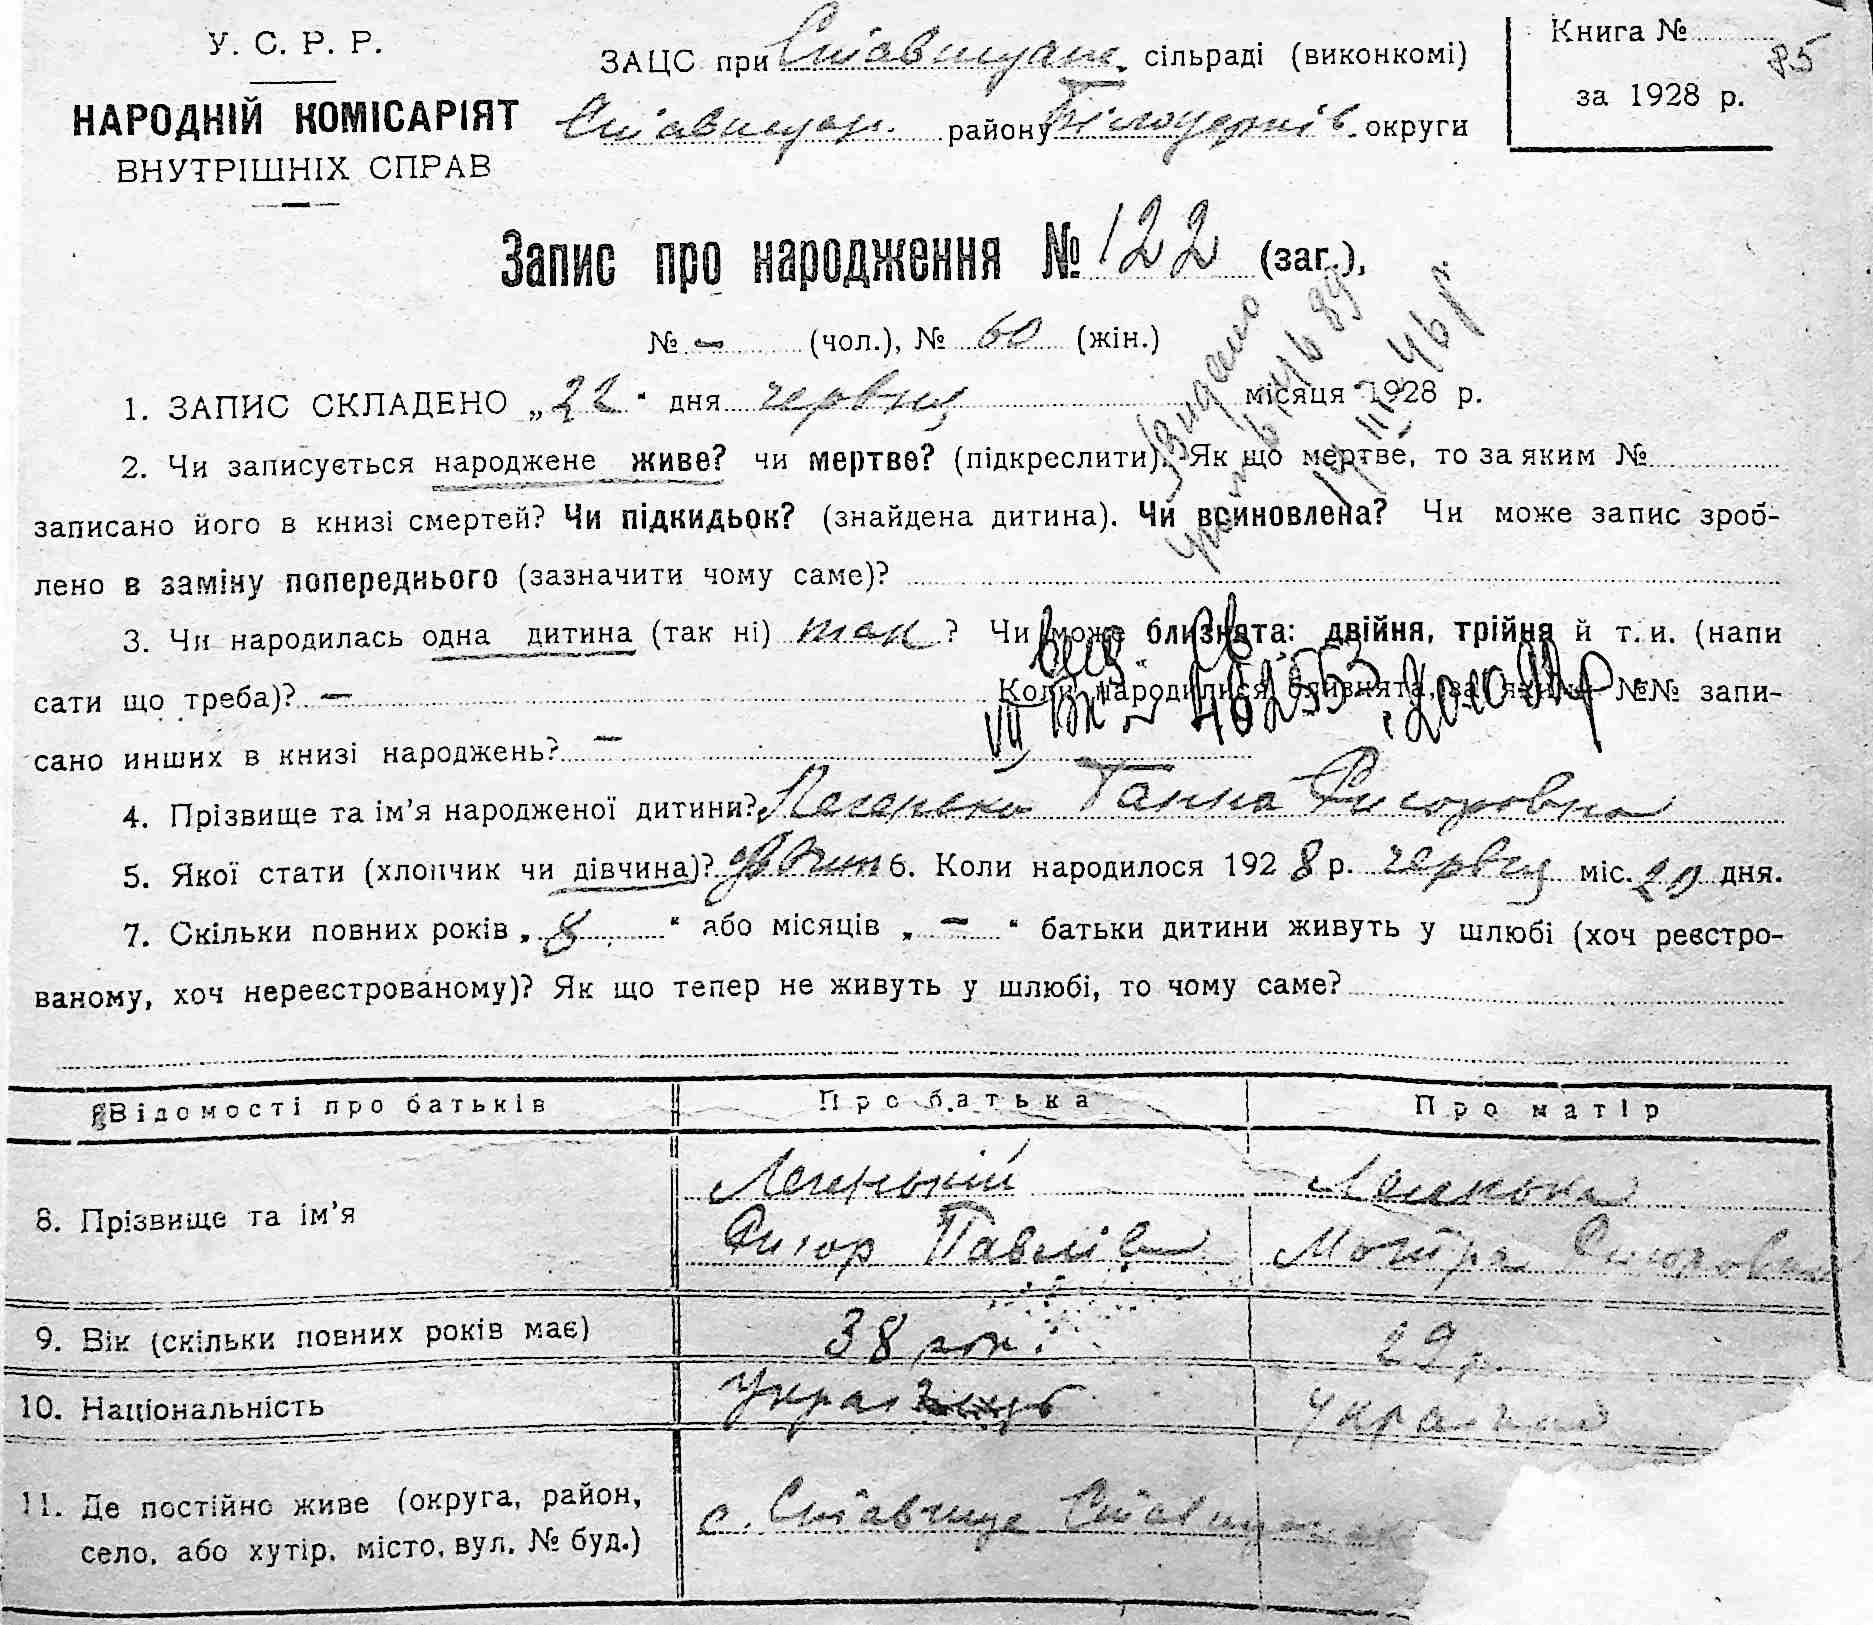 У. С. Р. Р.
НАРОДНІЙ КОМІСАРІЯТ
ВНУТРІШНІХ СПРАВ
ЗАЦС при Ставищан. сільраді (виконкомі)
Ставищан. району Білоцерків. округи
Книга №
85
за 1928 р.
Запис про народження № 122 (заг.),
№ - (чол.), № 60 (жін.)
Видано
1. ЗАПИС СКЛАДЕНО „22" дня червня місяця 1928 р.
2. Чи записується народжене живе? чи мертве? (підкреслити). Як що мертве, то за яким №
записано його в книзі смертей? Чи підкидьок? (знайдена дитина). Чи всиновлена? Чи може запис зроб-
лено в заміну попереднього (зазначити чому саме)?
3. Чи народилась одна дитина (так ні) так ? Чи може близнята: двійня, трійня й т. и. (напи
сати що треба)? — Коли народилися близнята, за якими №№ запи-
сано инших в книзі народжень? —
4. Прізвище та ім'я народженої дитини? Легенька Ганна Фигоровна
5. Якої стати (хлопчик чи дівчина)? дівчина 6. Коли народилося 1928 р. червня міс. 20 дня.
7. Скільки повних років „8" або місяців „—" батьки дитини живуть у шлюбі (хоч реєстро-
ваному, хоч нереєстрованому)? Як що тепер не живуть у шлюбі, то чому саме?
Відомості про батьків Про батька Про матір
8. Прізвище та ім'я
Легенький Легенька
Павлів Мотря
9. Вік (скільки повних років має) 38 рок. 29 р.
10. Національність Українець Українка
11. Де постійно живе (округа, район,
село, або хутір, місто, вул. № буд.)
с. Ставище